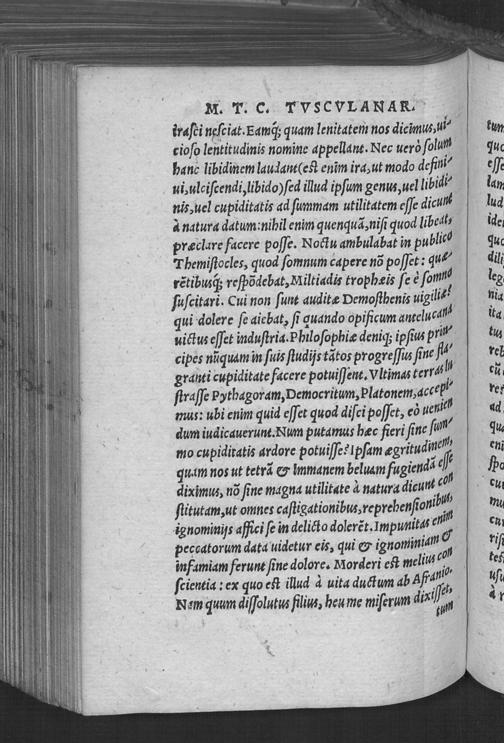 M. T. C. TVSCVLANAR.
irasci nesciat. Eamq́; quam lenitatem nos dicimus, ui-
cioso lentitudinis nomine appellant. Nec uerò solum
hanc libidinem laudant (est enim ira, ut modo defini-
ui, ulciscendi, libido) sed illud ipsum genus, uel libidi-
nis, uel cupiditatis ad summam utilitatem esse dicunt
à natura datum: nihil enim quenquã, nisi quod libeat,
præclare facere posse. Noctu ambulabat in publico
Themistocles, quod somnum capere nõ posset: quæ-
rẽtibusq́; respõdebat, Miltiadis trophæis se è somno
suscitari. Cui non sunt auditæ Demosthenis uigiliæ?
qui dolere se aiebat, si quando opificum antelucana
uictus esset industria. Philosophiæ deniq; ipsius prin-
cipes nũquam in suis studijs tãtos progressus sine fla-
granti cupiditate facere potuissent. Vltimas terras lu
strasse Pythagoram, Democritum, Platonem, accepi-
mus: ubi enim quid esset quod disci posset, eò uenien
dum iudicauerunt. Num putamus hæc fieri sine sum-
mo cupiditatis ardore potuisse? Ipsam ægritudinem,
quam nos ut tetrã & immanem beluam fugiendã esse
diximus, nõ sine magna utilitate à natura dicunt con
stitutam, ut omnes castigationibus, reprehensionibus,
ignominijs affici se in delicto dolerẽt. Impunitas enim
peccatorum data uidetur eis, qui & ignominiam &
infamiam ferunt sine dolore. Morderi est melius con
scientia: ex quo est illud à uita ductum ab Afranio.
Nam quum dissolutus filius, heu me miserum dixisset,
tum